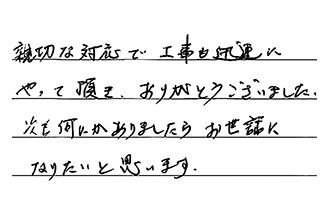 親切な対応で工事も迅速に
やって頂き、ありがとうございました。
次も何にかありましたらお世話に
なりたいと思います。